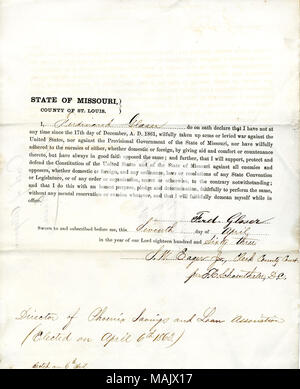 STATE OF MISSOURI,
COUNTY OF ST. LOUIS.
I, Ferdinand Glaser do on oath declare that I have not at
any time since the 17th day of December, A. D. 1861, wilfully taken up arms or levied war against the
United States, nor against the Provisional Government of the State of Missouri, nor have wilfully
adhered to the enemies of either, whether domestic or foreign, by giving aid and comfort or countenance
thereto, but have always in good faith opposed the same; and further, that I will support, protect and
defend the Constitution of the United States and of the State of Missouri against all enemies and
opposers, whether domestic or foreign, and any ordinance, law or resolutions of any State Convention
or Legislature, or of any order or organization, secret or otherwise, to the contrary notwithstanding;
and that I do this with an honest purpose, pledge and determination, faithfully to perform the same,
without any mental reservation or evasion whatever, and that I will demean myself loyally while in
office.
Fred. Glaser
Sworn to and subscribed before me, this Seventh day of April
in the year of our Lord eighteen hundred and Sixty three
Clerk County Court
D.C.
Director of Phoenix Savings and Loan Association
(Elected on April 6th 1863)
alamy
MAJX17